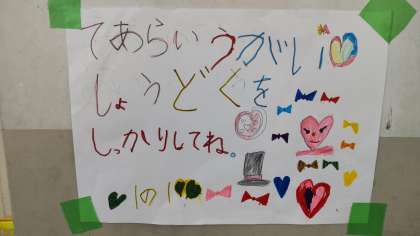 てあらいうがい
しょうどくを
しっかりしてね。
1の1